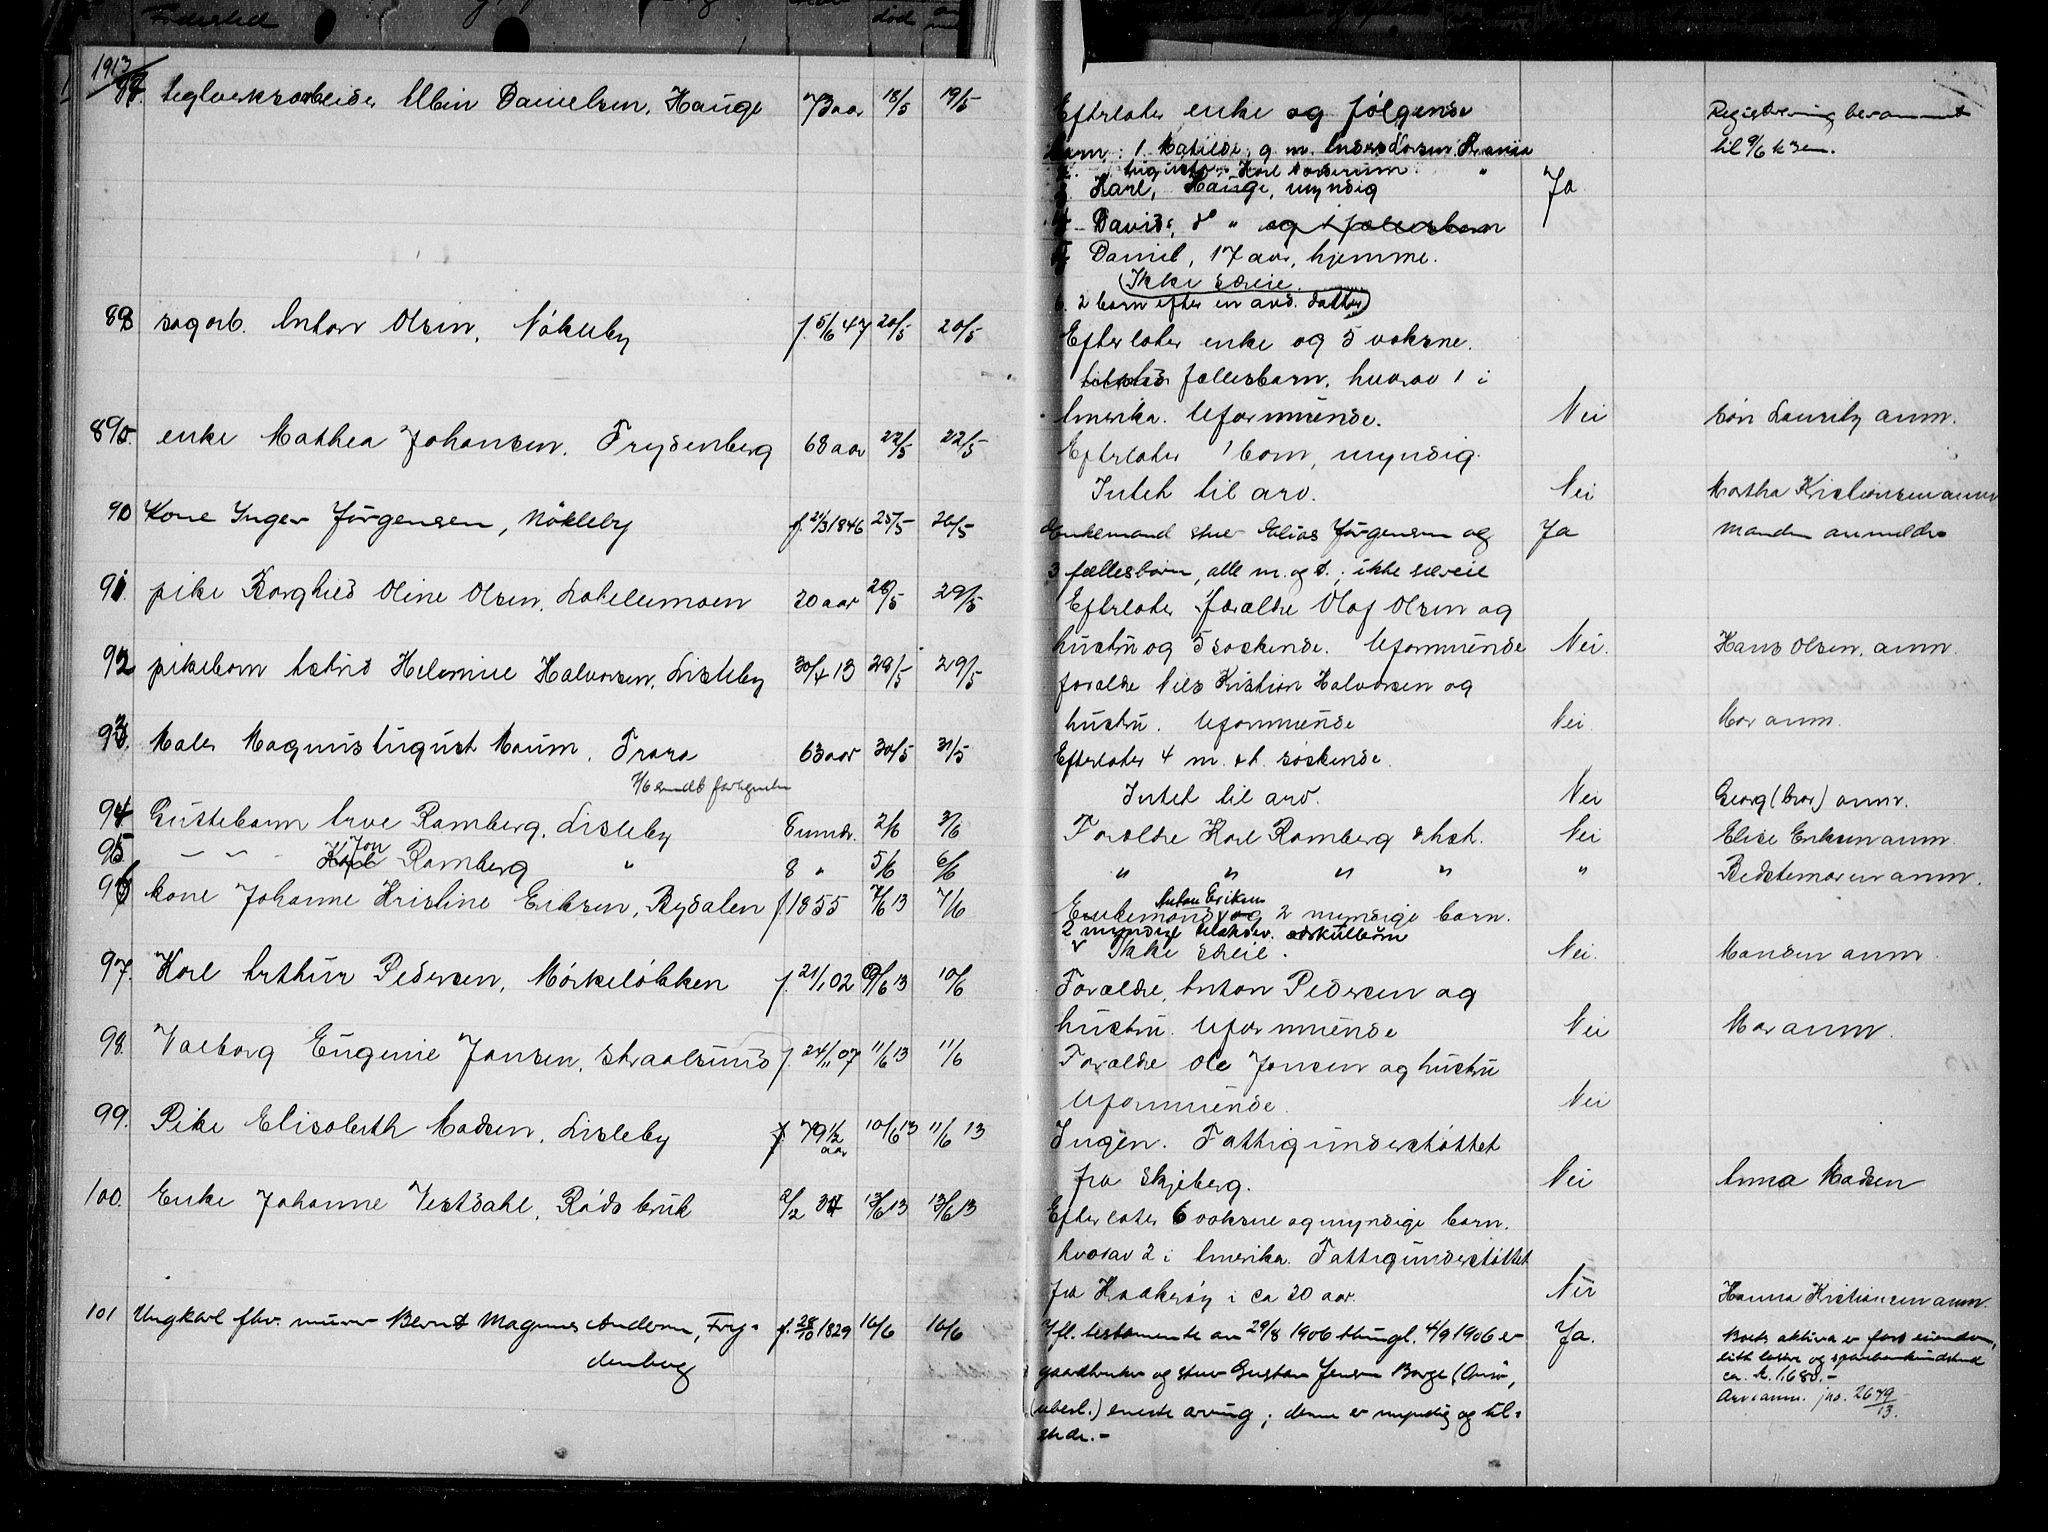 Fødested
død
1913
87. teglverksarbeider Albin Danielsen, Hauge 73 aar 18/5 19/5
Efterlater enke og følgende
Barn: 1. Matilde, g. m. Anders Larsen, Krania
2. Augusta " Karl Nordrum "
3. Karl, Hauge, myndig Ja
4. David, do " og 1 fællesbarn
5. Daniel, 17 aar, hjemme.
(Ikke særeie.
6. 2 barn efter en avd. datter)
Registrering berammet
til 9/6 k 3 em.
88 sagarb. Anton Olsen, Nökleby f. 5/6 47 20/5 20/5
Efterlater enke og 5 voksne
fællesbarn, hvorav 1 i
Amerika. Uformuende. Nei Søn Lauritz anm.
89. enke Mathea Johansen, Frydenberg 68 aar 22/5 22/5
Efterlater 1 barn, myndig.
Intet til arv. Nei Martha Kristiansen anm
90 Kone Inger Jörgensen, Nökleby f. 21/3 1846 25/5 26/5
Enkemand stuer Elias Jörgensen og Ja Manden anmeldes
3 fællesbörn, alle m. og t.; ikke særeie
91. pike Borghild Oline Olsen, Labellemoen 20 aar 28/5 29/5
Efterlater forældre Olaf Olsen og
hustru og 5 søskende. Uformuende Nei. Hans Olsen, anm.
92 pikebarn Astrid Helmine Halvorsen, Lisleby 30/4 13 28/5 29/5
forældre Nils Kristian Halvorsen og
hustru. Uformuende Nei Mor anm.
93. Maler Magnus August Moum, Trara 63 aar 30/5 31/5
Efterlater 4 m. & t. søskende.
Intet til arv. Nei Georg (bror) anm.
94 Guttebarn Arve Ramberg, Lisleby 8 mndr. 2/6 3/6
Forældre Karl Ramberg & hst. Nei Elise Eriksen anm.
95. — " — Karl Jon Ramberg " 8 " 5/6 6/6
" " " " " Bedstemoren anm.
96 kone Johanne Kristine Eriksen, Rydalen f. 1855 7/6 13 7/6
Anton Eriksen
Enkemand og 2 myndige barn.
2 myndige særkulbørn
Ikke særeie. Nei. Manden anm.
97. Karl Arthur Pedersen, Mörkelökken f. 21/1 02 9/6 13 10/6
Forældre, Anton Pedersen og
hustru. Uformuende Nei Mor anm.
98. Valborg Eugenie Jansen, Straalsund f. 24/11 07 11/6 13 11/6
Forældre Ole Jansen og hustru
Uformuende. Nei
99. Pike Elisabeth Madsen, Lisleby f 79 1/2 aar 10/6 13 11/6 13
Ingen. Fattigunderstöttet
fra Skjeberg. Nei Anna Madsen
100. Enke Johanne Vestdahl, Röds bruk 2/2 34 13/6 13 13/6 13
Efterlater 6 voksne og myndige barn.
hvorav 2 i Amerika. Fattigunderstöttet
fra Kraakeröy i ca 20 aar. Nei Hanna Kristiansen anm.
101 Ungkarl fhv. murer Bernt Magnus Andersen, Fry-
denberg f. 28/10 1829 16/6 16/6
Ifl. testamente av 29/8 1906 thingl. 4/9 1906 er Ja.
gaardbruker og stuer Gustav Jensen Borge
eneste arving; denne er myndig og til-
stede. –
Boets aktiva er fast eiendom,
litt løsøre og sparebankindskud
ca. k. 1680.–
Arveanm. jno. 2679/13.